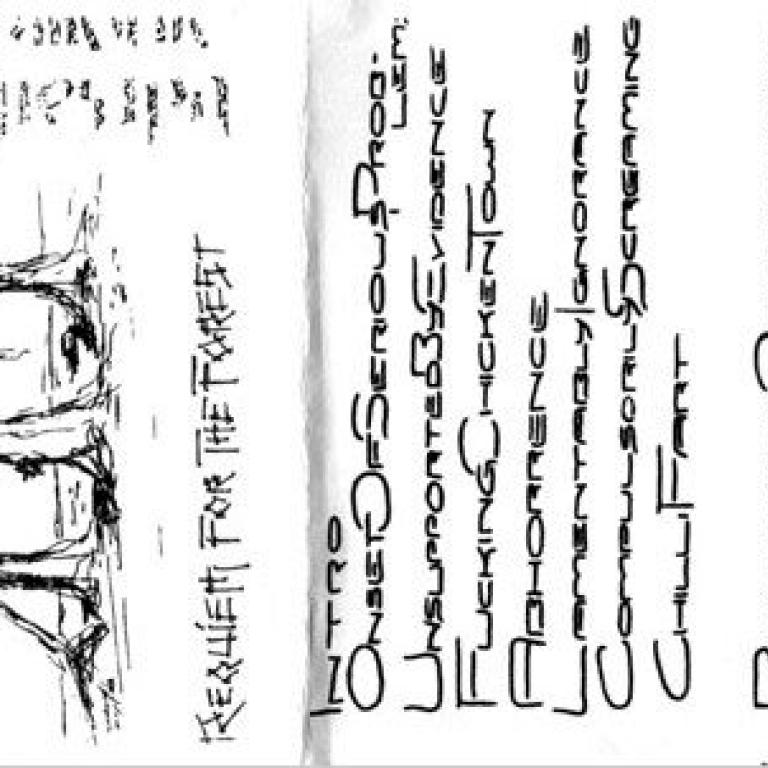 REQUIEM FOR THE FOREST
INTRO
ONSET OF SERIOUS PROB-
LEM.
UNSUPPORTED BY EVIDENCE
FUCKING CHICKEN TOWN
ABHORRENCE
LAMENTABLY IGNORANCE
COMPULSORILY SCREAMING
CHILLI FART